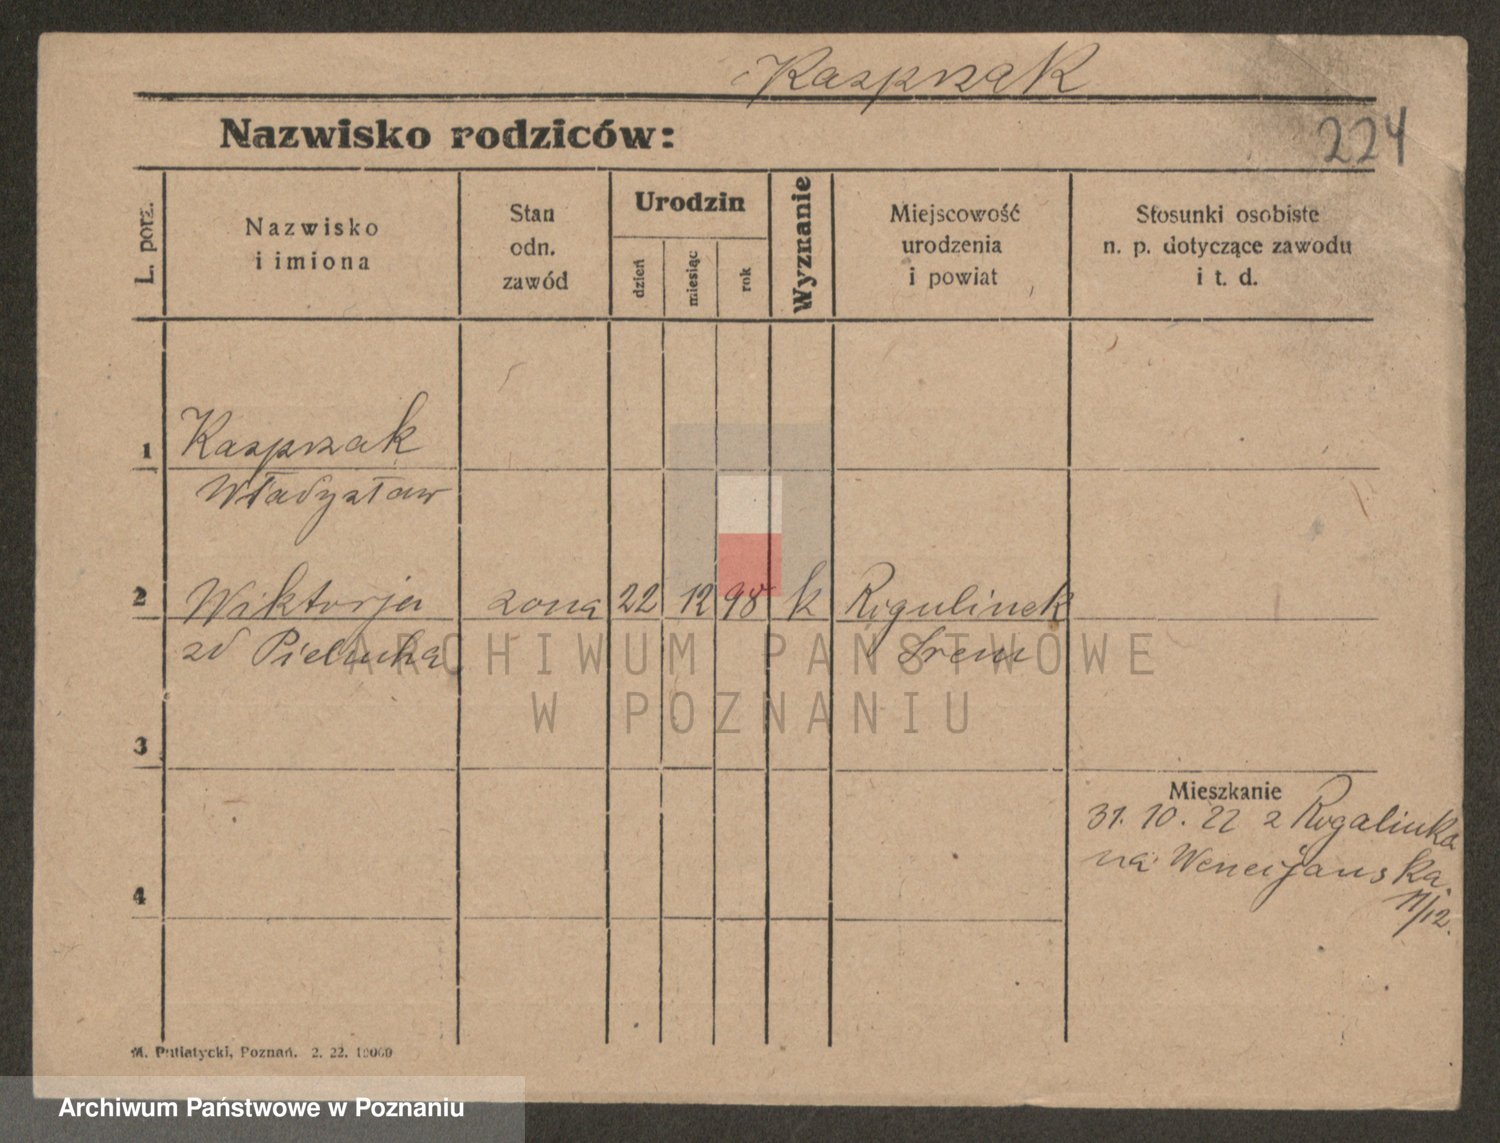 Kasprzak
Nazwisko rodziców:
224
L. porz.
Nazwisko
i imiona
Stan
odn.
zawód
Urodzin
dzień
miesiąc
rok
Wyznanie
Miejscowość
urodzenia
i powiat
Stosunki osobiste
n. p. dotyczące zawodu
i t. d.
1
Kasprzak
Władysław
2 Wiktorja żona 22 12 98 k Rogulinek
zd Śrem
3
Mieszkanie
31. 10. 22 z Rogalinka
na Wenecjańska
11/12.
4
M. Putiatycki, Poznań. 2. 22. 10000
ARCHIWUM PAŃSTWOWE
W POZNANIU
Archiwum Państwowe w Poznaniu